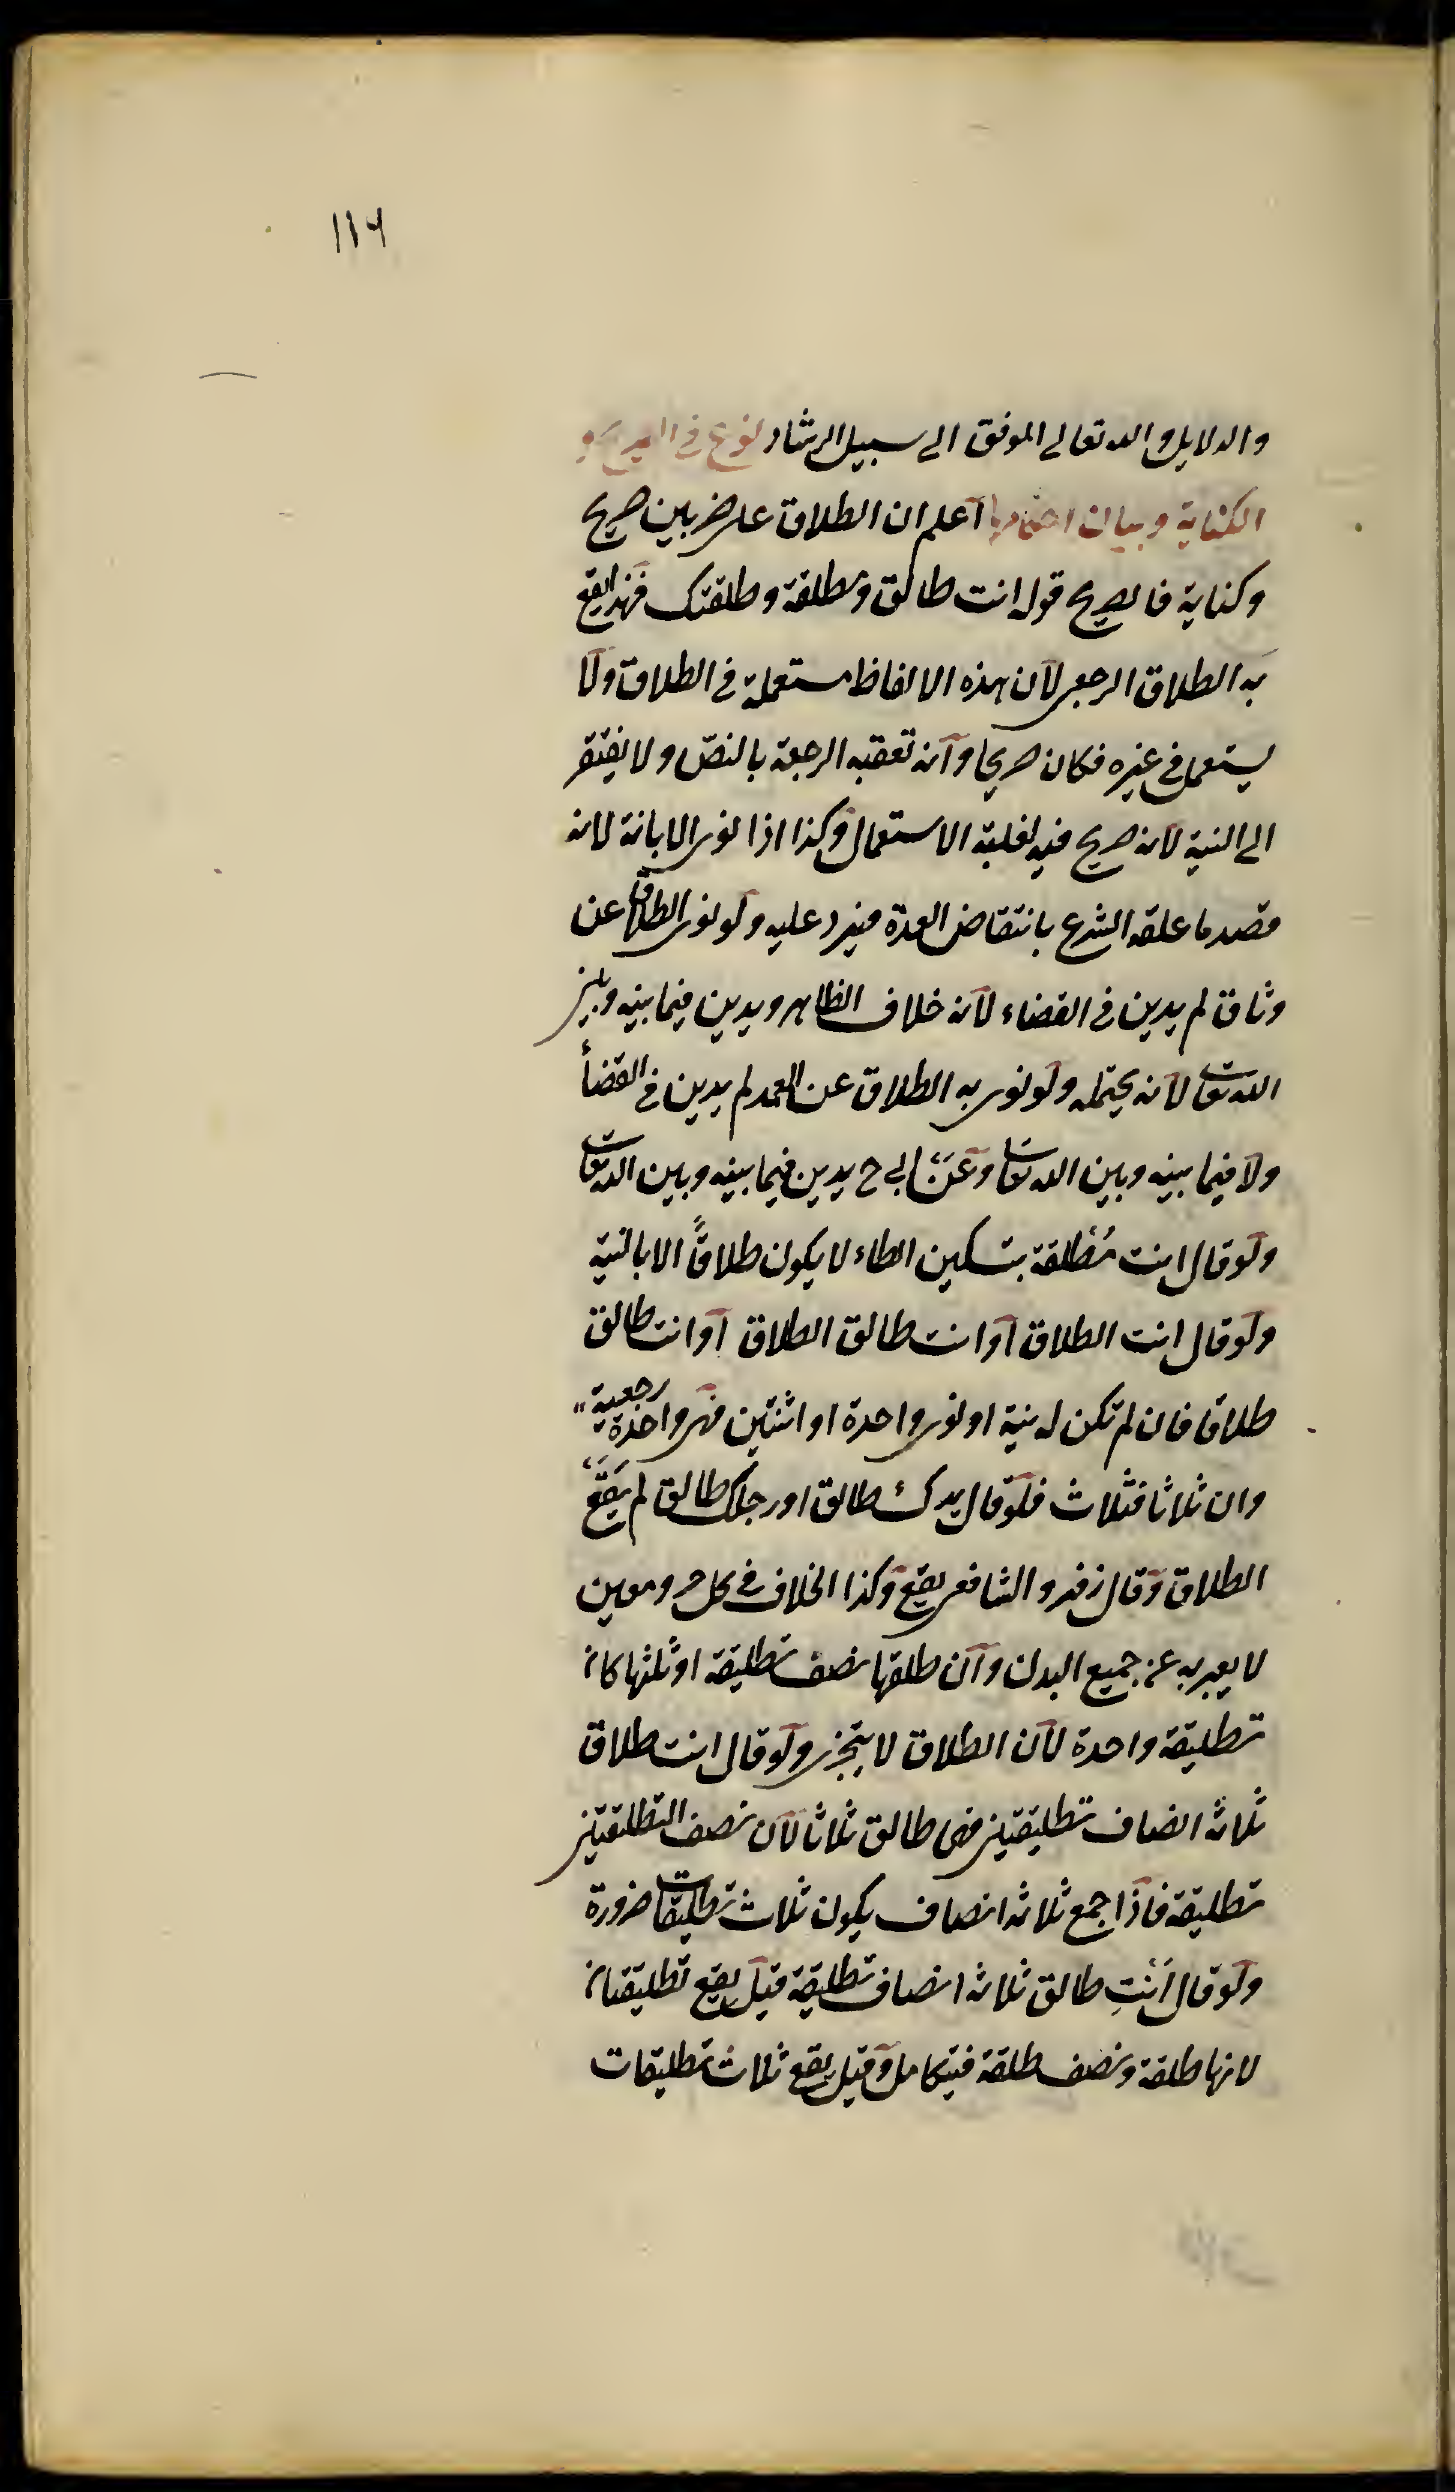 ١١٦
والدلايل والله تعالى الموفق الى سبيل الرشاد نوع في الصريح و
الكناية وبيان احكامها اعلم ان الطلاق على ضربين صريح
وكناية فالصريح قوله انت طالق ومطلقة وطلقتك فهذا يقع
به الطلاق الرجعى لان هذه الالفاظ مستعملة في الطلاق ولا
يستعمل في غيره فكان صريحا وانه تعقبه الرجعة بالنصّ ولا يفتقر
الى النية لانه صريح فيه لغلبة الاستعمال وكذا اذا نوى الابانة لانه
قصد ما علقه الشرع بانتقاض العدة فيرد عليه ولو نوى الطلاق عن
وثاق لم يدين في القضاء لانه خلاف الظاهر ويدين فيما بينه وبين
الله تعا لانه يحتمله ولو نوى به الطلاق عن العمد لم يدين في القضأ
ولا فيما بينه وبين الله تعا وعن ابى ح يدين فيما بينه وبين الله تعا
ولو قال انت مُطْلقة بتسكين الطاء لا يكون طلاقًا الا بالنية
ولو قال انت الطلاق او انت طالق الطلاق او انت طالق
طلاقا فان لم تكن له نية او نوى واحدة او اثنتين فهى واحدة رجعية
وان ثلاثا فثلاث فلو قال يدك طالق او رجلك طالق لم يقع
الطلاق وقال زفر والشافعى يقع وكذا الخلاف في كل جزء معين
لا يعبر به عن جميع البدن وان طلقها نصف تطليقة او ثلثها كان
تطليقة واحدة لان الطلاق لا يتجزى ولو قال انت طلاق
ثلاثة انصاف تطليقتين فهى طالق ثلاثا لان نصف التطليقتين
تطليقة فاذا جمع ثلاثة انصاف يكون ثلاث تطليقات ضرورة
ولو قال اَنْتِ طالق ثلاثة انصاف تطليقة قيل يقع تطليقتان
لانها طلقة ونصف طلقة فيتكامل وقيل يقع ثلاث تطليقات